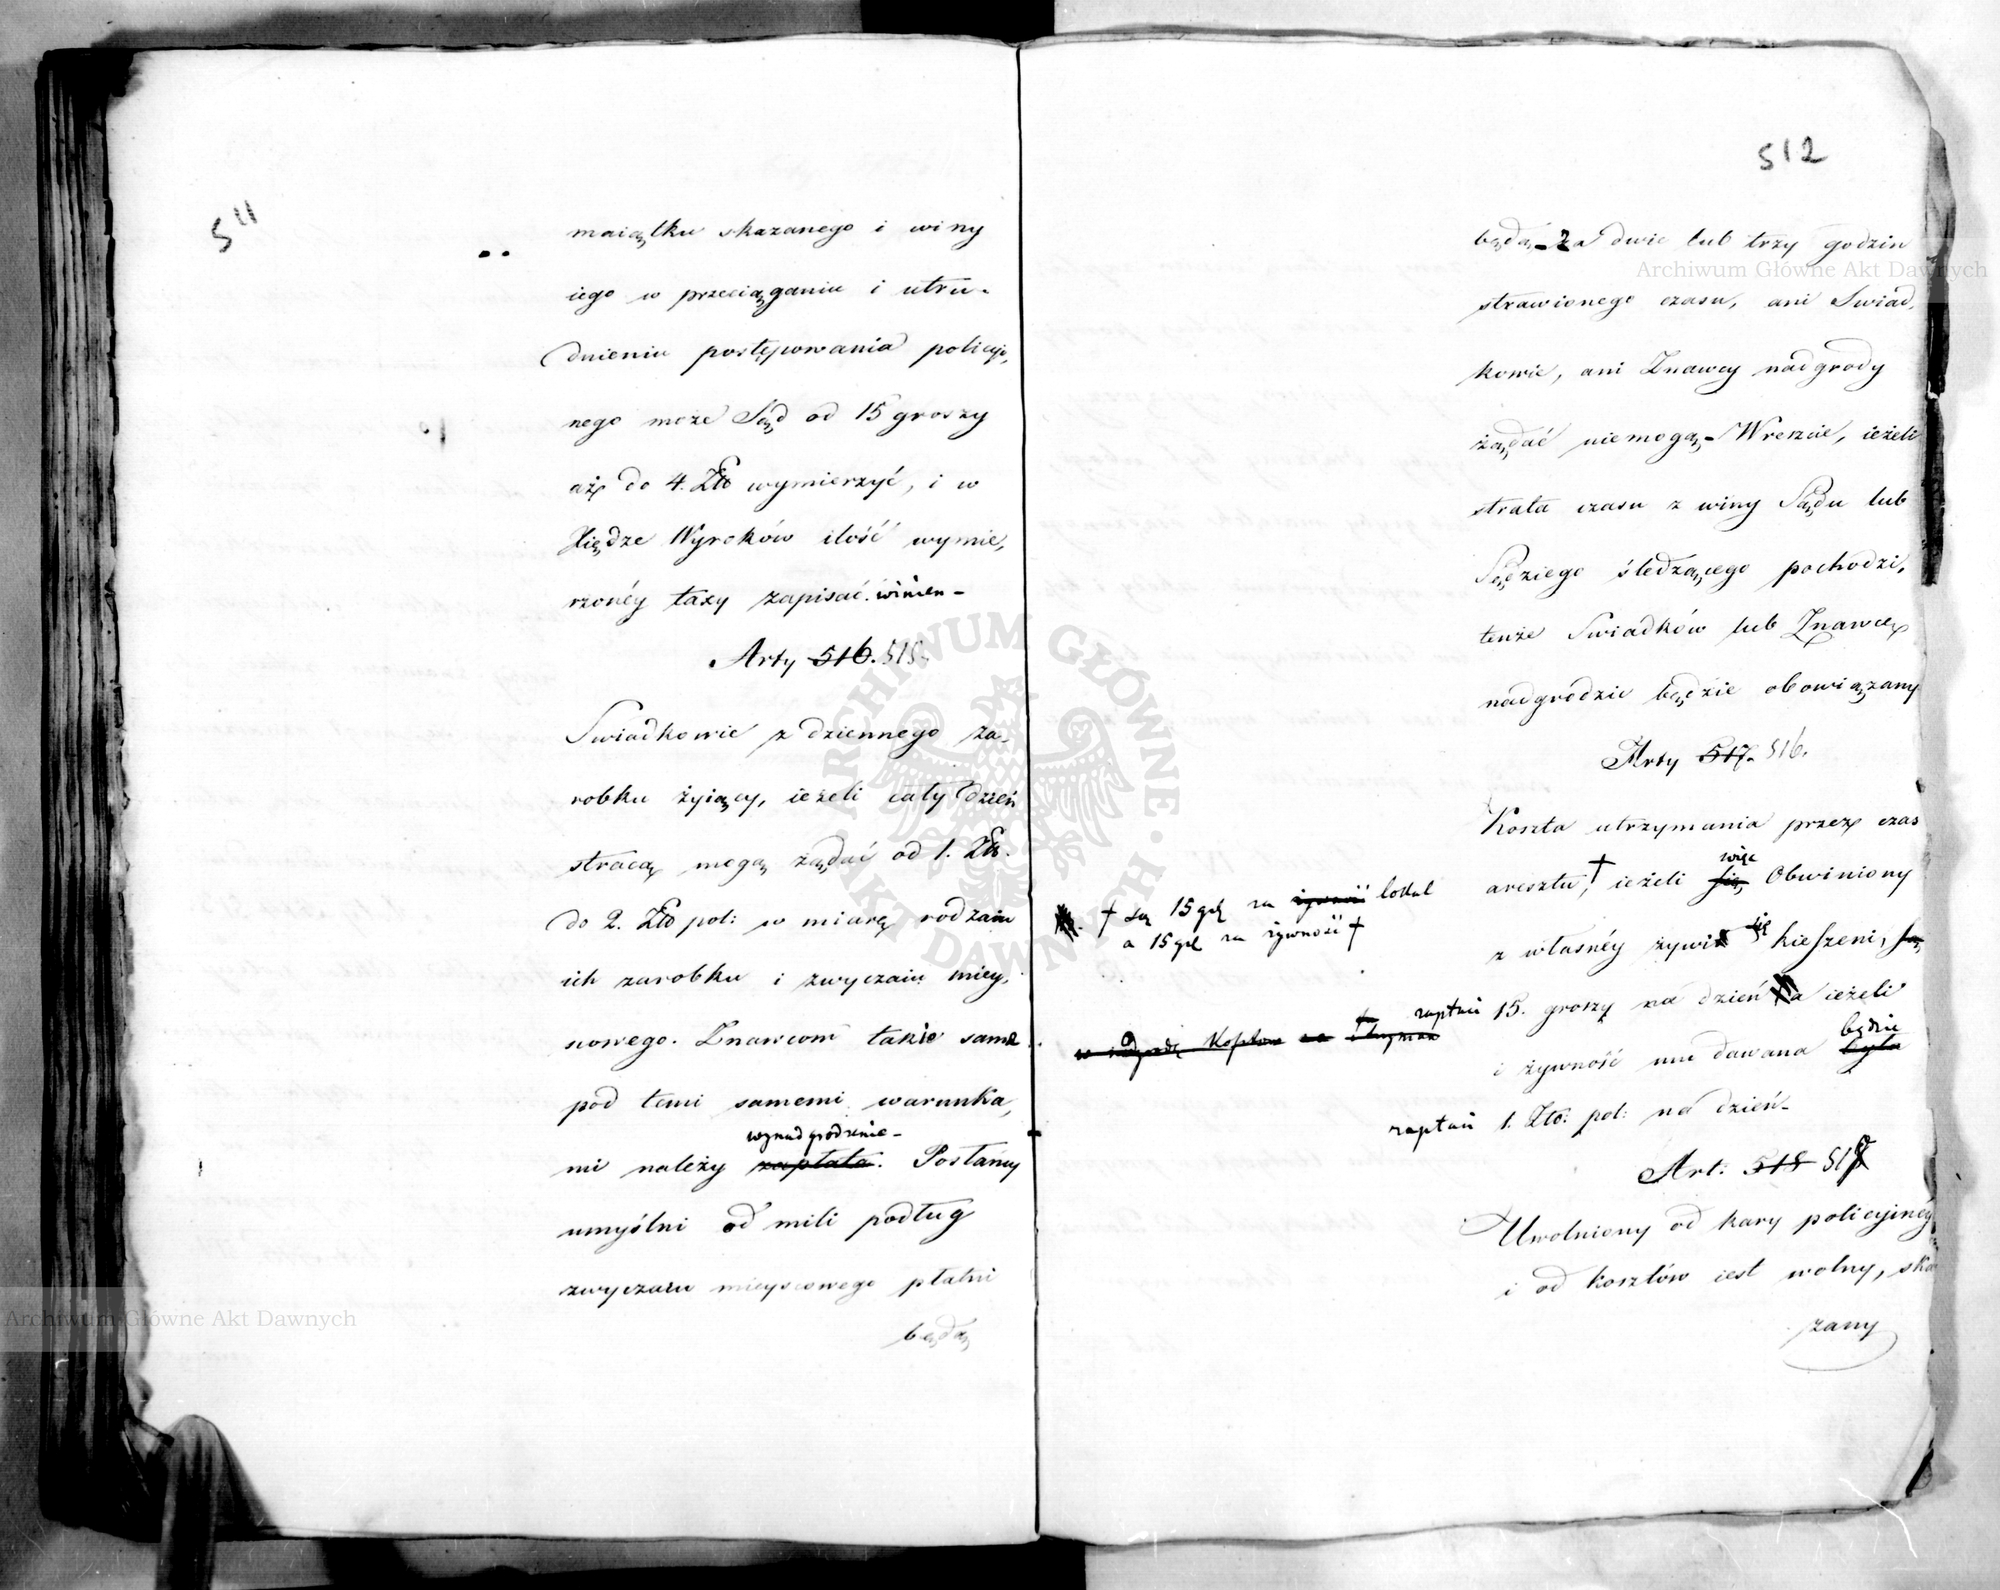 511
maiątku skazanego i winy
iego w przeciąganiu i utru-
dnieniu postępowania policyi,
nego może Sąd od 15 groszy
aż do 4. Złł wymierzyć, i w
Xiędze Wyroków ilość wymie,
rzonéy taxy zapisać winien-
Arty 516. 515.
Swiadkowie z dziennego za-
robku żyiący, ieżeli cały dzień
stracą mogą żądać od 1. Złł.
do 2. Złł pol: w miarę rodzaiu
ich zarobku i zwyczaiu miey,
scowego. Znawcom takie same
pod temi samemi warunka,
wynadgrodzenie-
mi należy zapłata. Posłańcy
umyślni od mili podług
zwyczaiu mieyscowego płatni
będą
512
będą - Za dwie lub trzy godzin
strawionego czasu, ani Swiad,
kowie, ani Znawcy nadgrody
żądać niemogą - Wreszcie, ieżeli
strata czasu z winy Sądu lub
Sędziego śledzącego pochodzi,
tenże Swiadków lub Znawcę
nadgrodzić będzie obowiązany
Arty 517. 516.
Koszta utrzymania przez czas
aresztu, † ieżeli się więc Obwiniony
z własnéy żywi się kieszeni, są
zapłaci 15. groszy na dzień a ieżeli
i żywność mu dawana była będzie
zapłaci 1. Złł: pol: na dzień-
† są 15 gr za żywność lokal
a 15 gr za żywność †
w nadgrodę Kosztów za
Art: 518 517
Uwolniony od kary policyjnéy
i od kosztów iest wolny, ska
zany
Archiwum Główne Akt Dawnych
Archiwum Główne Akt Dawnych
ARCHIWUM GŁÓWNE AKT DAWNYCH